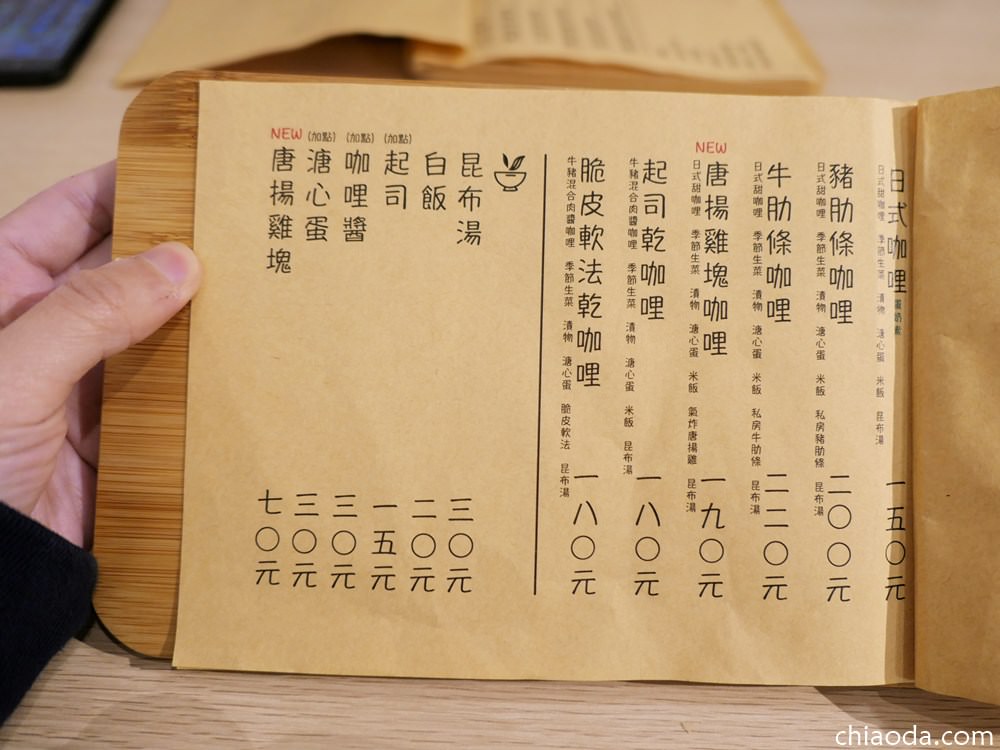 日式咖哩
日式甜咖哩 季節生菜 漬物 溏心蛋 米飯 昆布湯
一五〇元
豬肋條咖哩
日式甜咖哩 季節生菜 漬物 溏心蛋 米飯 私房豬肋條 昆布湯
二〇〇元
牛肋條咖哩
日式甜咖哩 季節生菜 漬物 溏心蛋 米飯 私房牛肋條 昆布湯
二二〇元
NEW
唐揚雞塊咖哩
日式甜咖哩 季節生菜 漬物 溏心蛋 米飯 氣炸唐揚雞 昆布湯
一九〇元
起司乾咖哩
牛豬混合肉醬咖哩 季節生菜 漬物 溏心蛋 米飯 昆布湯
一八〇元
脆皮軟法乾咖哩
牛豬混合肉醬咖哩 季節生菜 漬物 溏心蛋 脆皮軟法 昆布湯
一八〇元
昆布湯
三〇元
白飯
二〇元
(加點)
起司
一五元
(加點)
咖哩醬
三〇元
(加點)
溏心蛋
三〇元
NEW
唐揚雞塊
七〇元
chiaoda.com